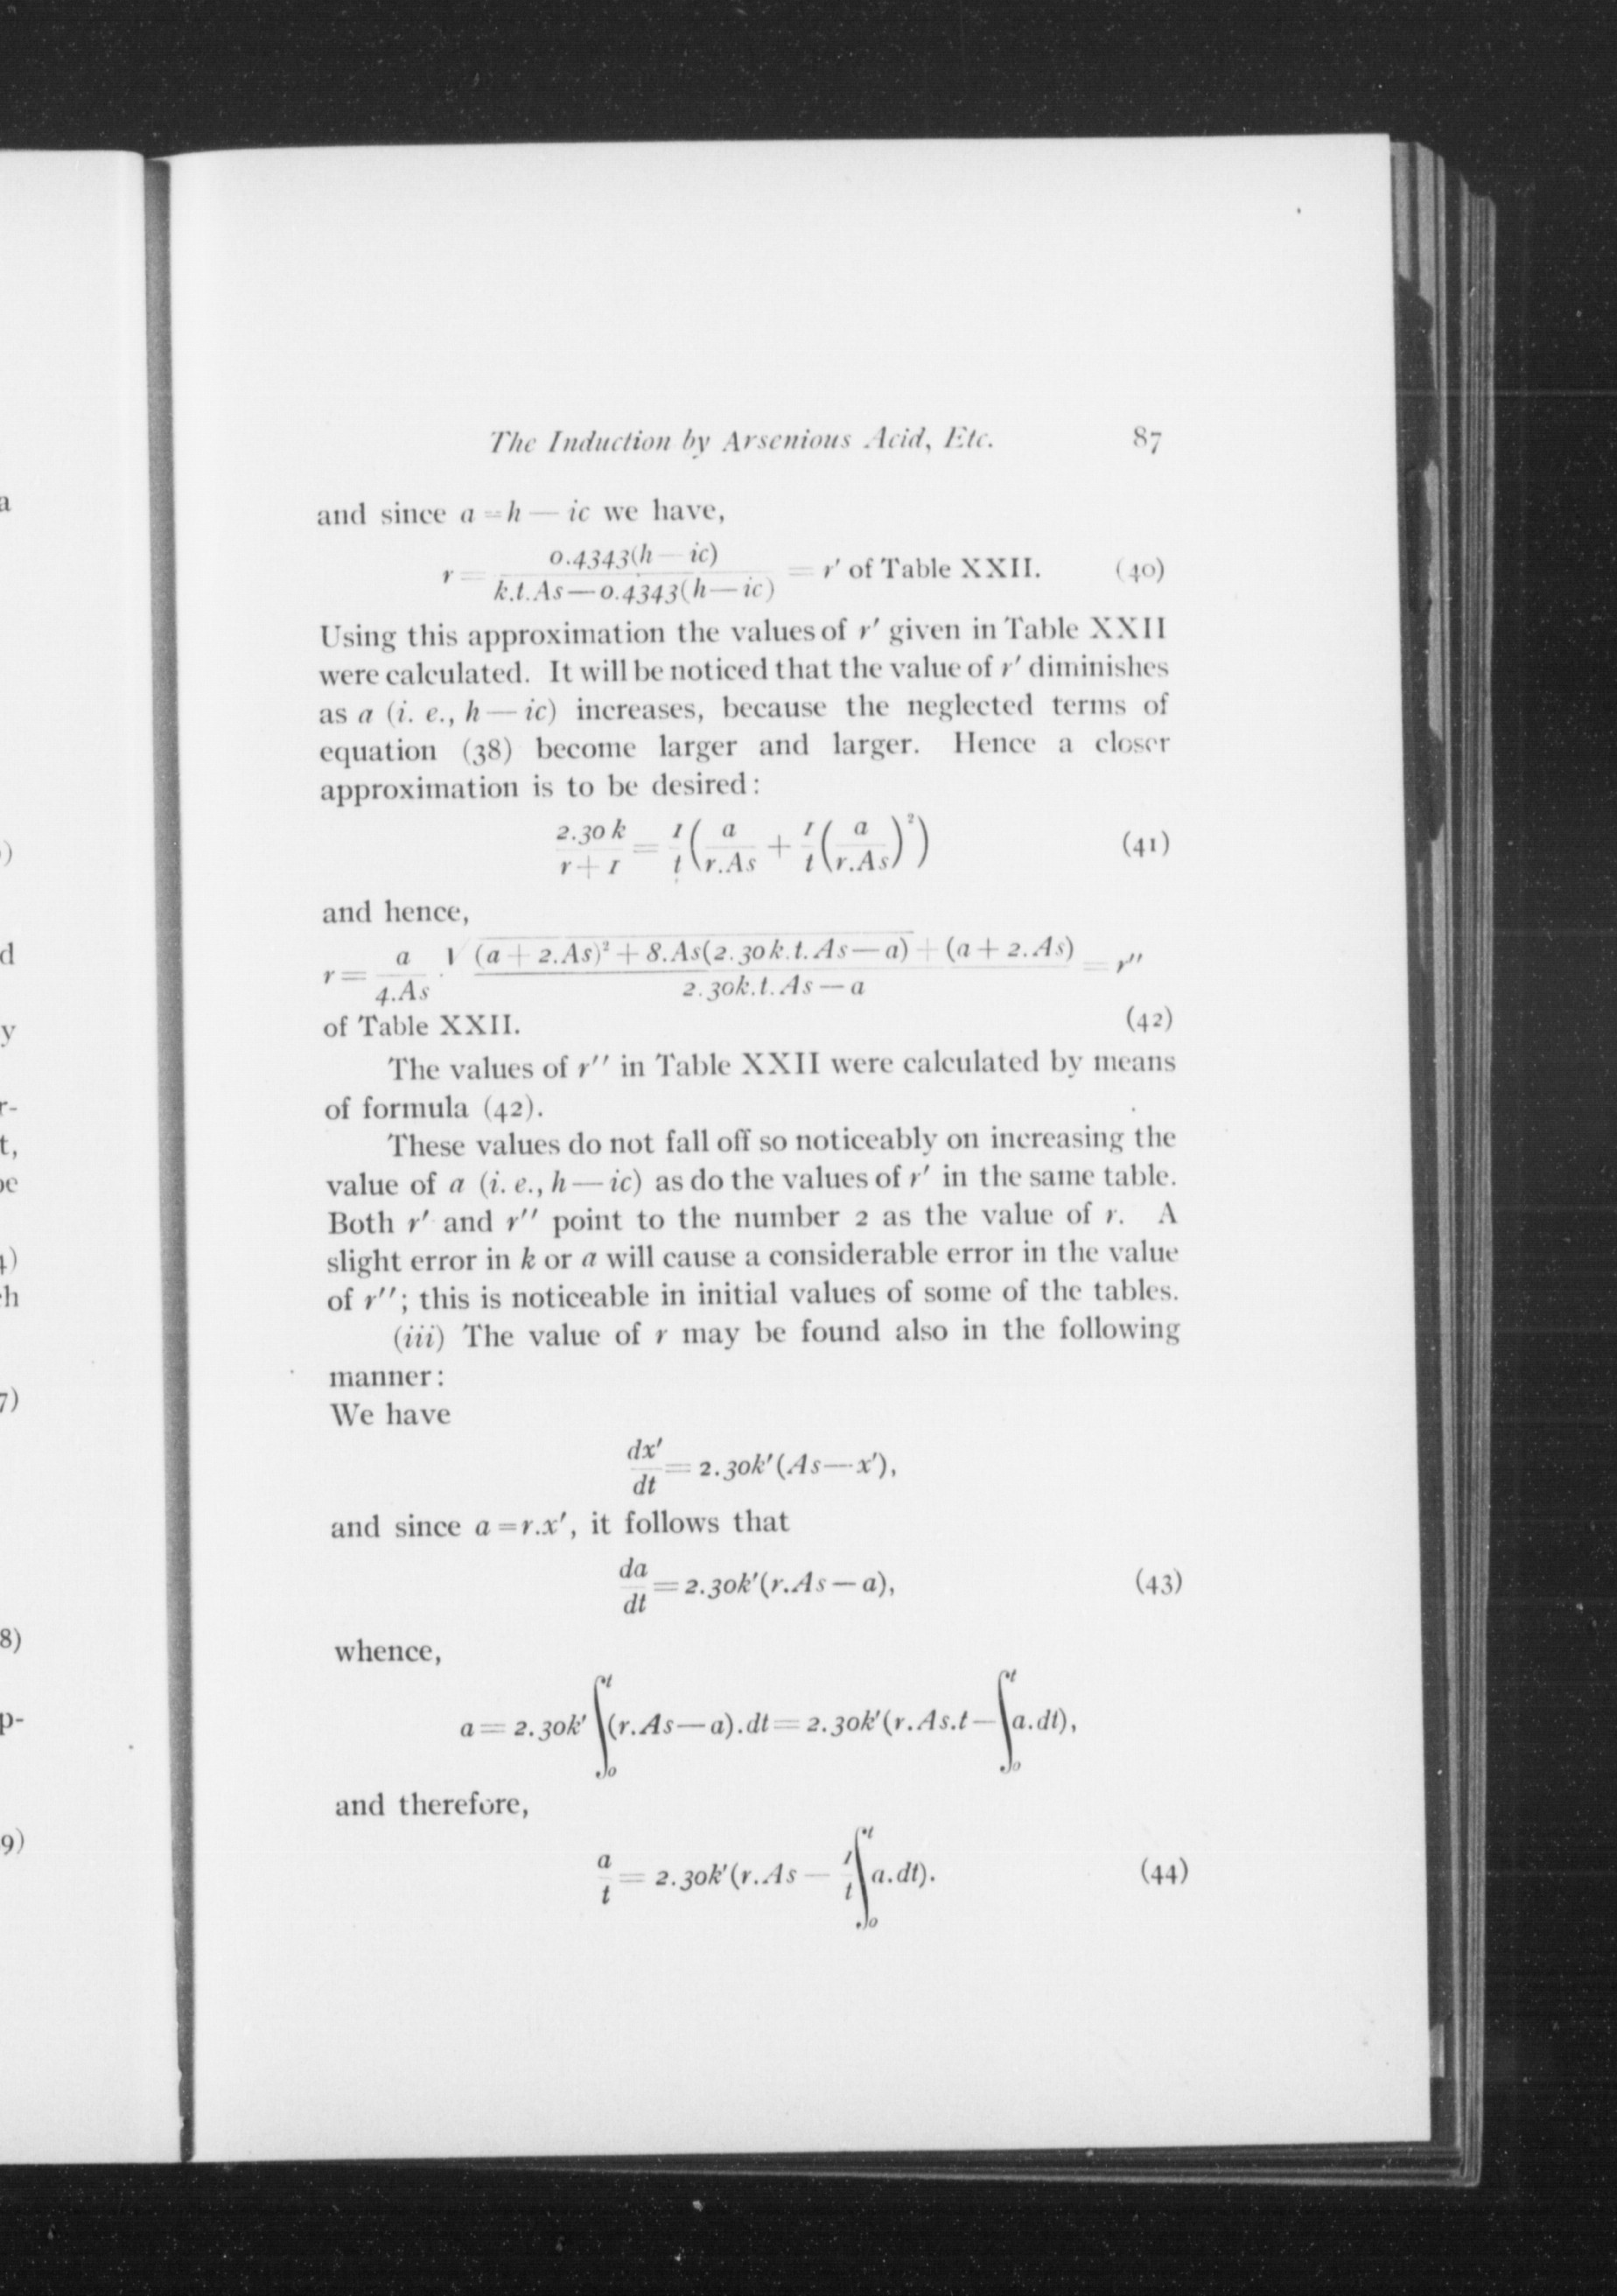 The Induction by Arsenious Acid, Etc. 87
and since a = h — ic we have,
r = 0.4343(h — ic) / k.t.As — 0.4343(h — ic) = r′ of Table XXII. (40)
Using this approximation the values of r′ given in Table XXII
were calculated. It will be noticed that the value of r′ diminishes
as a (i. e., h — ic) increases, because the neglected terms of
equation (38) become larger and larger. Hence a closer
approximation is to be desired:
2.30 k / r + 1 = 1/t ( a / r.As + 1/t ( a / r.As )² ) (41)
and hence,
r = a / 4.As · √(a + 2.As)² + 8.As(2.30k.t.As — a) + (a + 2.As) / 2.30k.t.As — a = r″
of Table XXII. (42)
The values of r″ in Table XXII were calculated by means
of formula (42).
These values do not fall off so noticeably on increasing the
value of a (i. e., h — ic) as do the values of r′ in the same table.
Both r′ and r″ point to the number 2 as the value of r. A
slight error in k or a will cause a considerable error in the value
of r″; this is noticeable in initial values of some of the tables.
(iii) The value of r may be found also in the following
manner:
We have
dx′/dt = 2.30k′(As — x′),
and since a = r.x′, it follows that
da/dt = 2.30k′(r.As — a), (43)
whence,
a = 2.30k′ ∫₀ᵗ (r.As — a).dt = 2.30k′(r.As.t — ∫₀ᵗ a.dt),
and therefore,
a/t = 2.30k′(r.As — 1/t ∫₀ᵗ a.dt). (44)